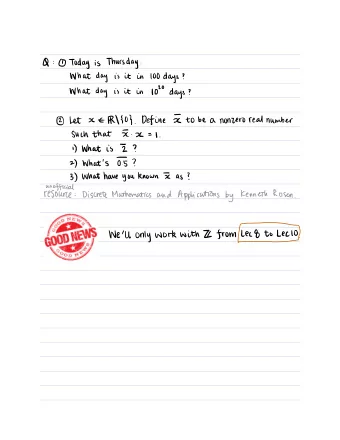 Q : ① Today is Thursday
What day is it in 100 days ?
What day is it in 10²⁰ days ?
② Let x ∈ ℝ\{0}. Define x̄ to be a nonzero real number
such that x̄ · x = 1.
1) What is 2̅ ?
2) What's 0.5̅ ?
3) What have you known x̄ as ?
unofficial
resource : Discrete Mathematics and Applications by Kenneth Rosen
GOOD NEWS
GOOD NEWS
GOOD NEWS
We'll only work with ℤ from Lec 8 to Lec 10